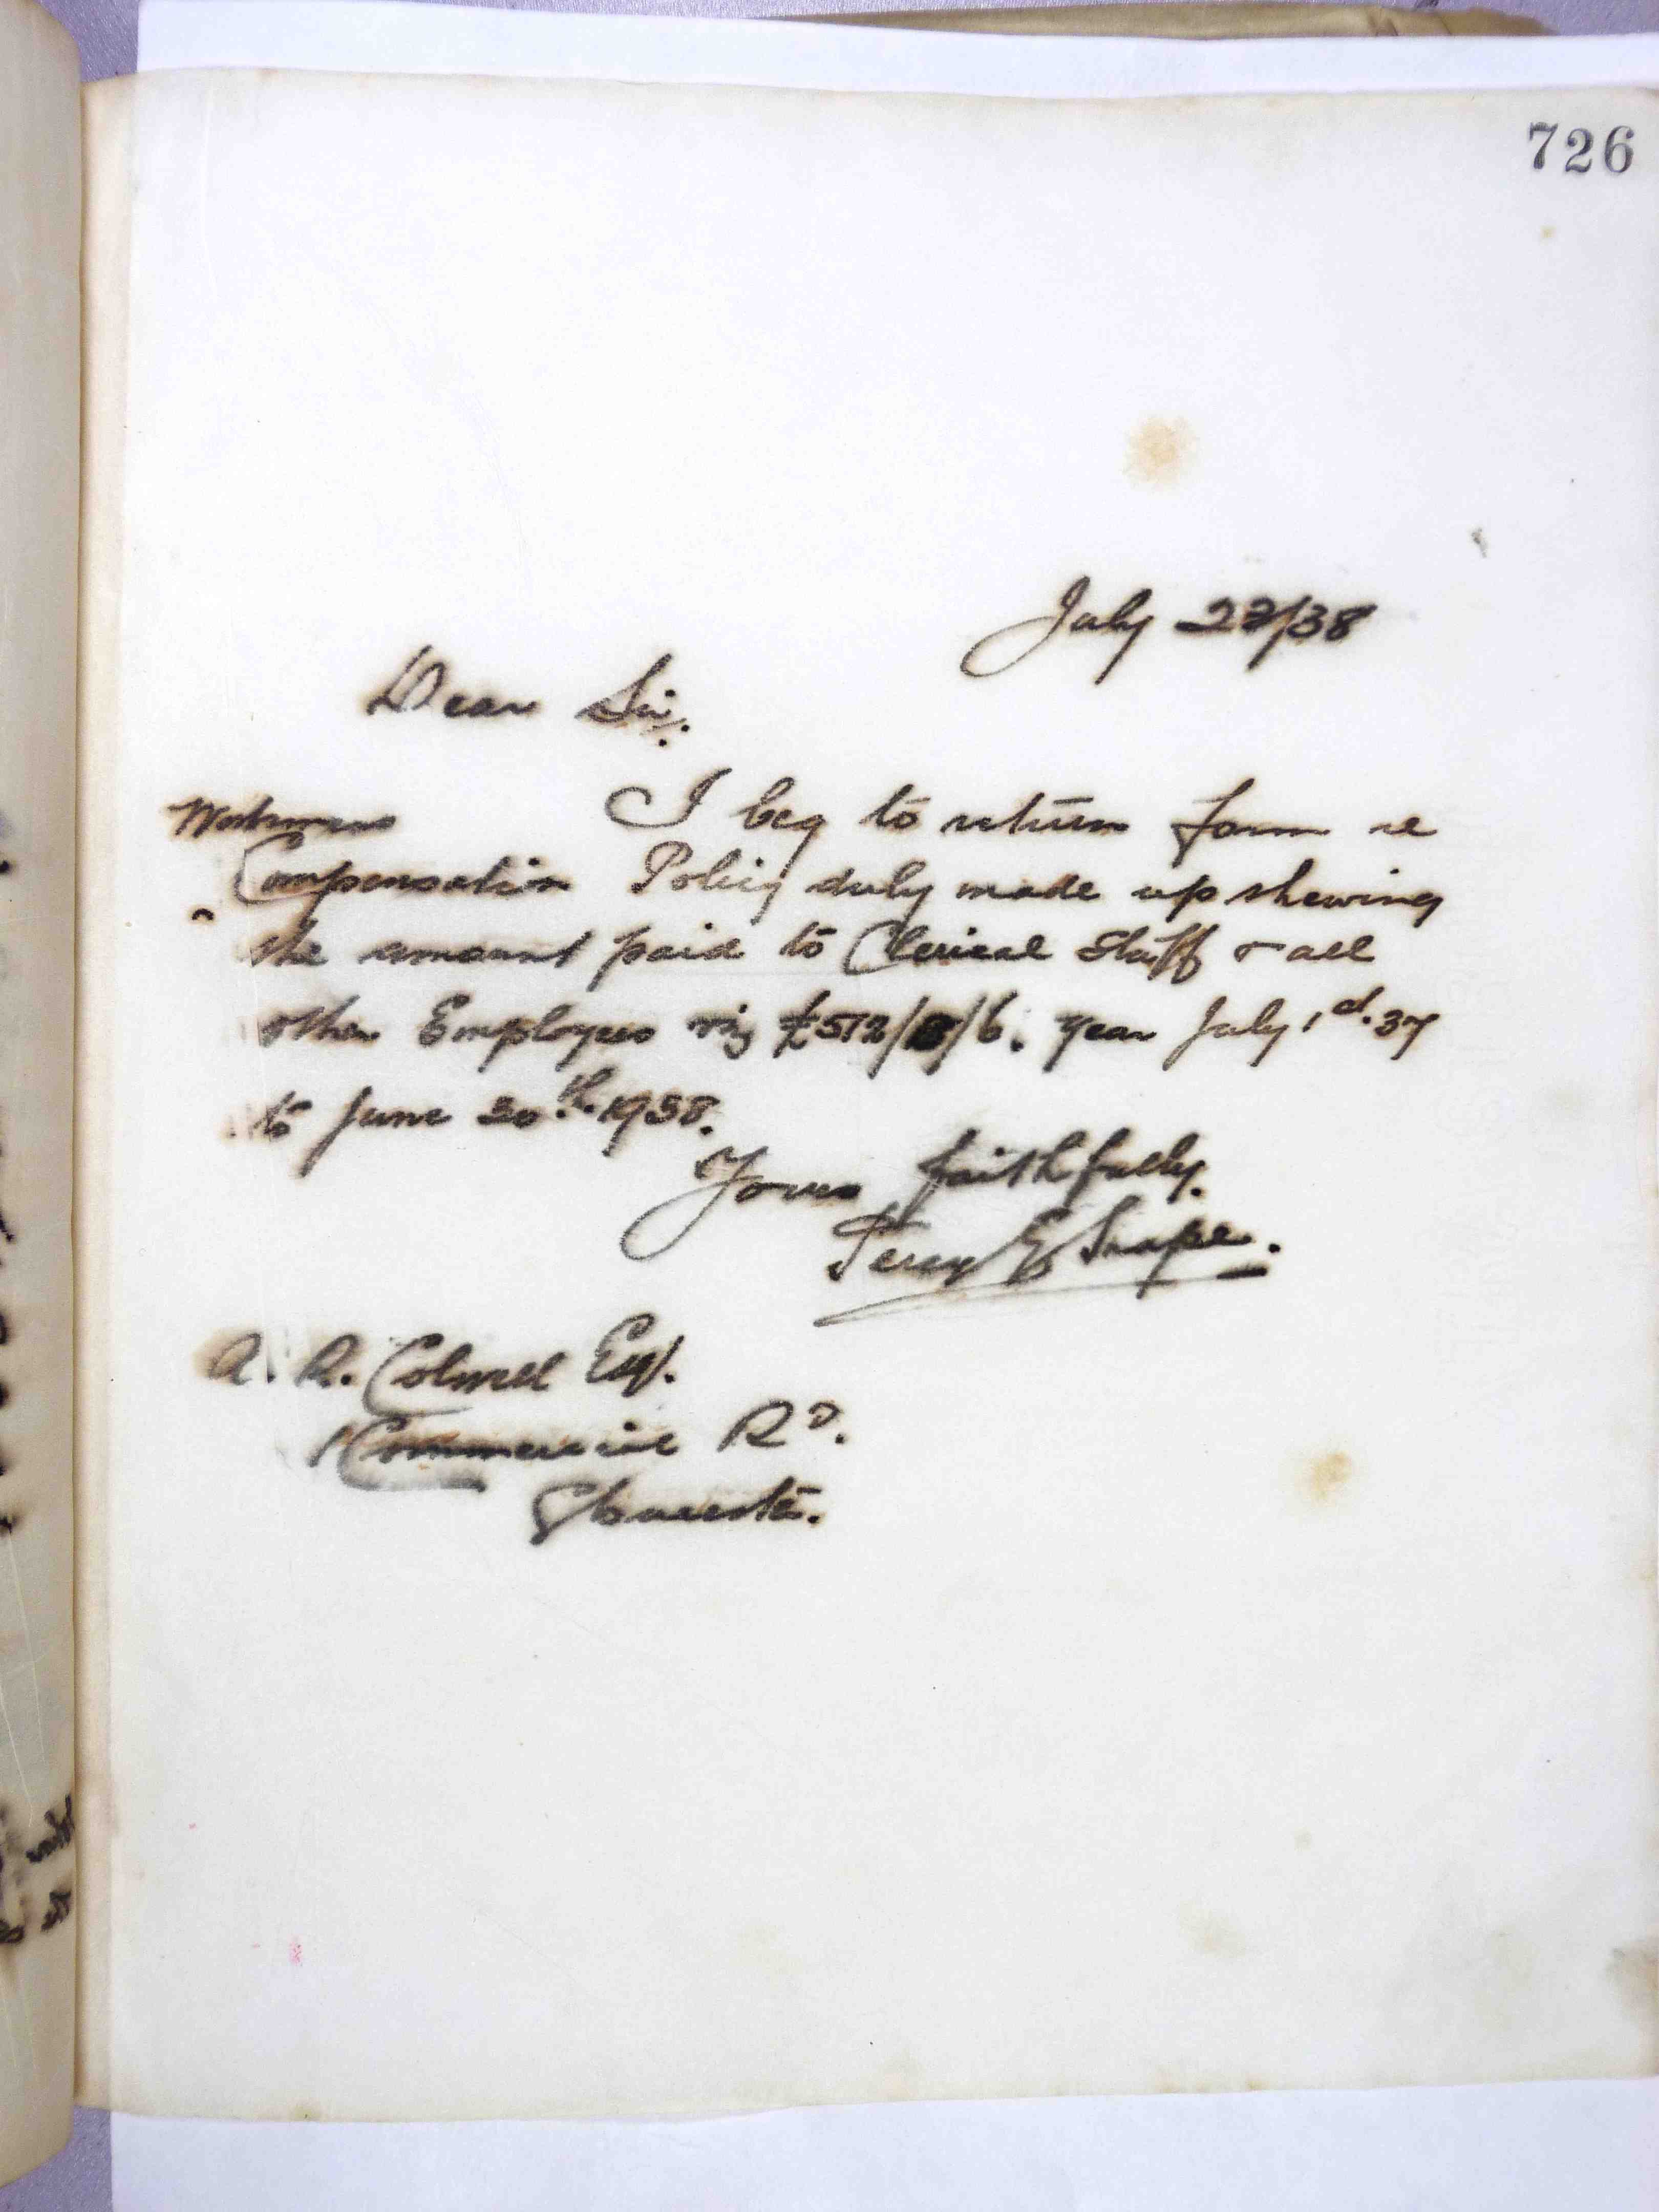 726
July 22/38
Dear Sir.
I beg to return form re
Workmens
Compensation Policy duly made up shewing
the amount paid to Clerical Staff & all
other Employees viz £572/ /6. year July 1st. 37
to June 30th. 1938.
Yours faithfully.
Percy E Snape.
A. R. Colwell Esq.
Commercial Rd.
Gloucester.